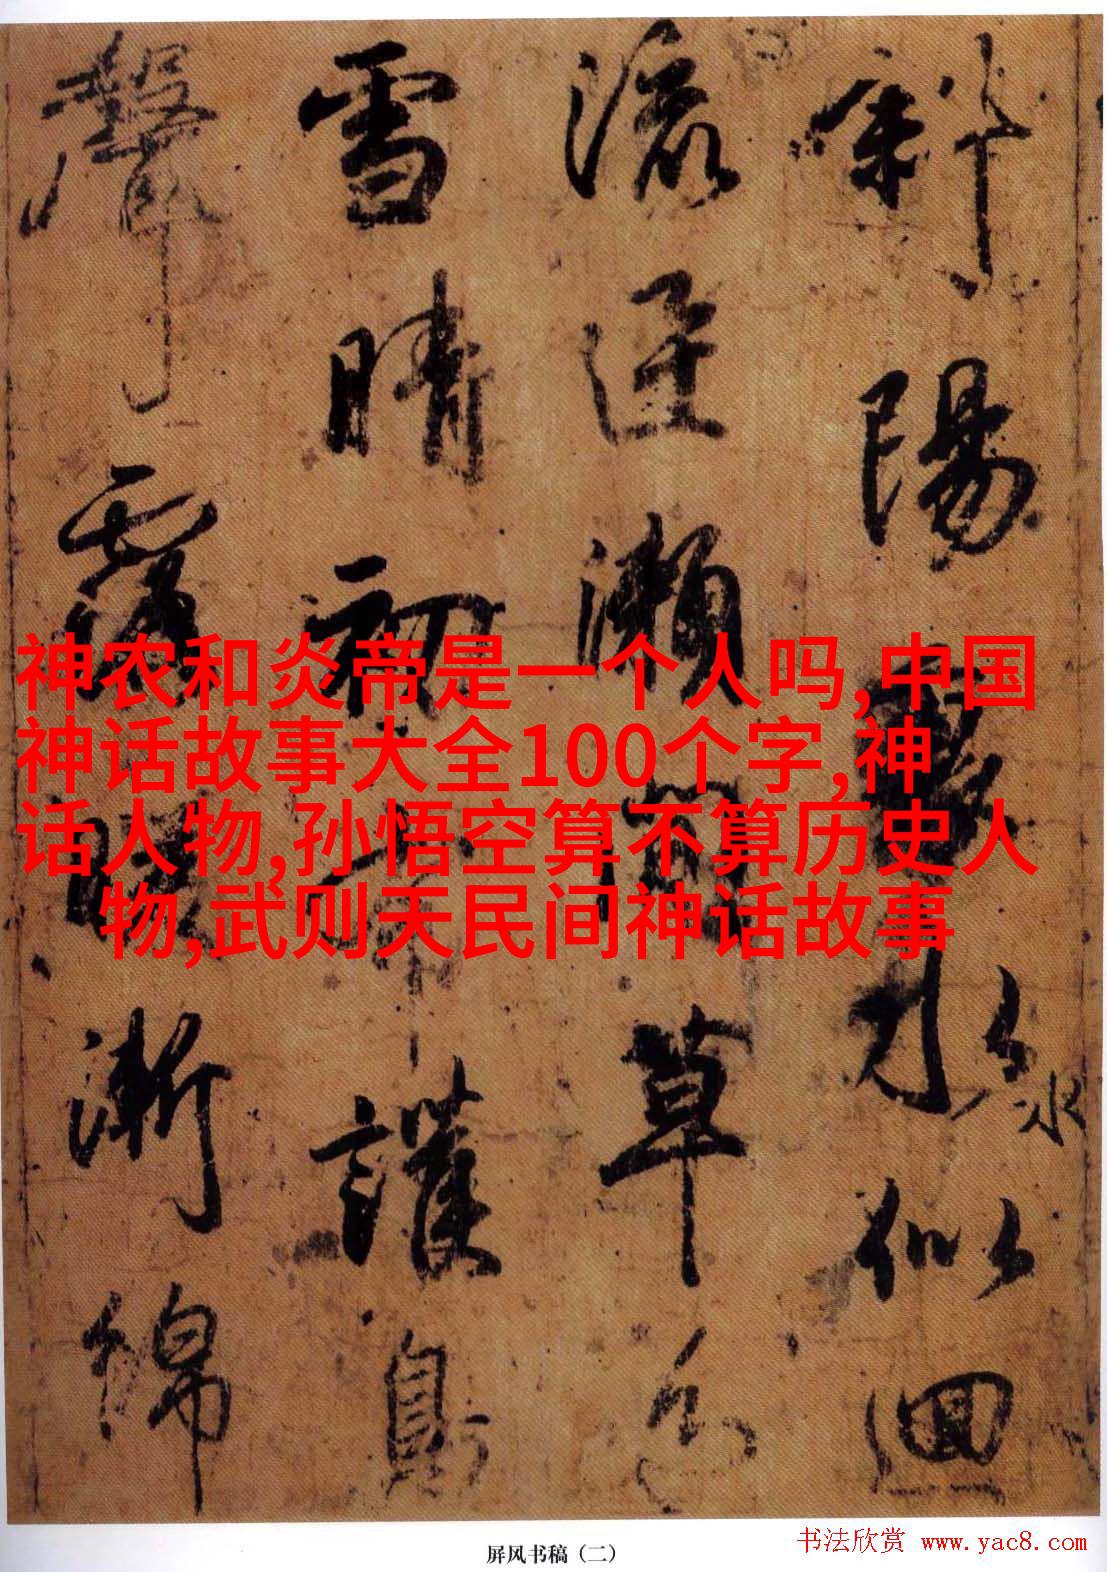 斜陽水似回
流迸瀨草色
雪晴初護鳥
聲露暖漸綿
神农和炎帝是一个人吗,中国
神话故事大全100个字,神
话人物,孙悟空算不算历史人
物,武则天民间神话故事
屏风书稿（二）
书法欣赏 www.yac8.com